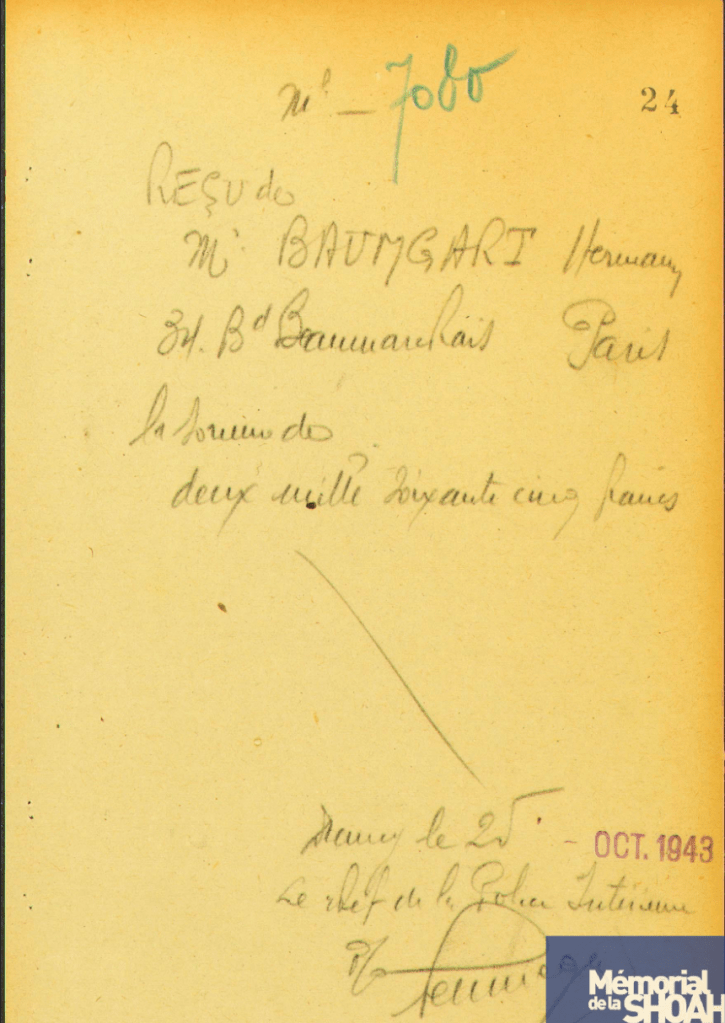 Mˡᵉ — 7080
24
REÇU de
Mʳ BAUMGART Hermann
34. Bᵈ Beaumarchais Paris
la somme de
deux mille soixante cinq francs
Drancy le 25
- OCT. 1943
Le chef de la Police Intérieure
Mémorial
de la SHOAH